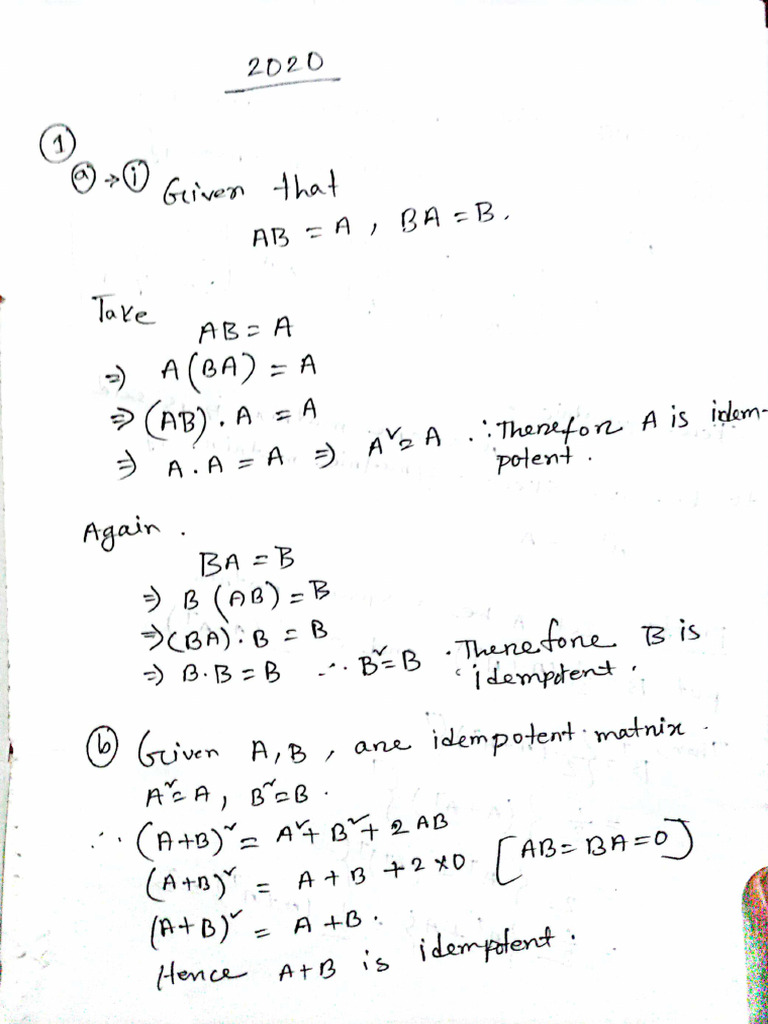 2020
①
ⓐ → ⓘ Given that
AB = A , BA = B.
Take
AB = A
⇒ A(BA) = A
⇒ (AB) . A = A
⇒ A . A = A ⇒ A² = A . ∴ Therefore A is idem-
potent .
Again .
BA = B
⇒ B (AB) = B
⇒ (BA) . B = B
⇒ B . B = B ∴ B² = B . Therefore B is
idempotent .
ⓑ Given A, B , are idempotent matrix .
A² = A , B² = B .
∴ (A+B)² = A² + B² + 2AB
(A+B)² = A + B + 2×0 [AB = BA = 0]
(A+B)² = A + B .
Hence A+B is idempotent .